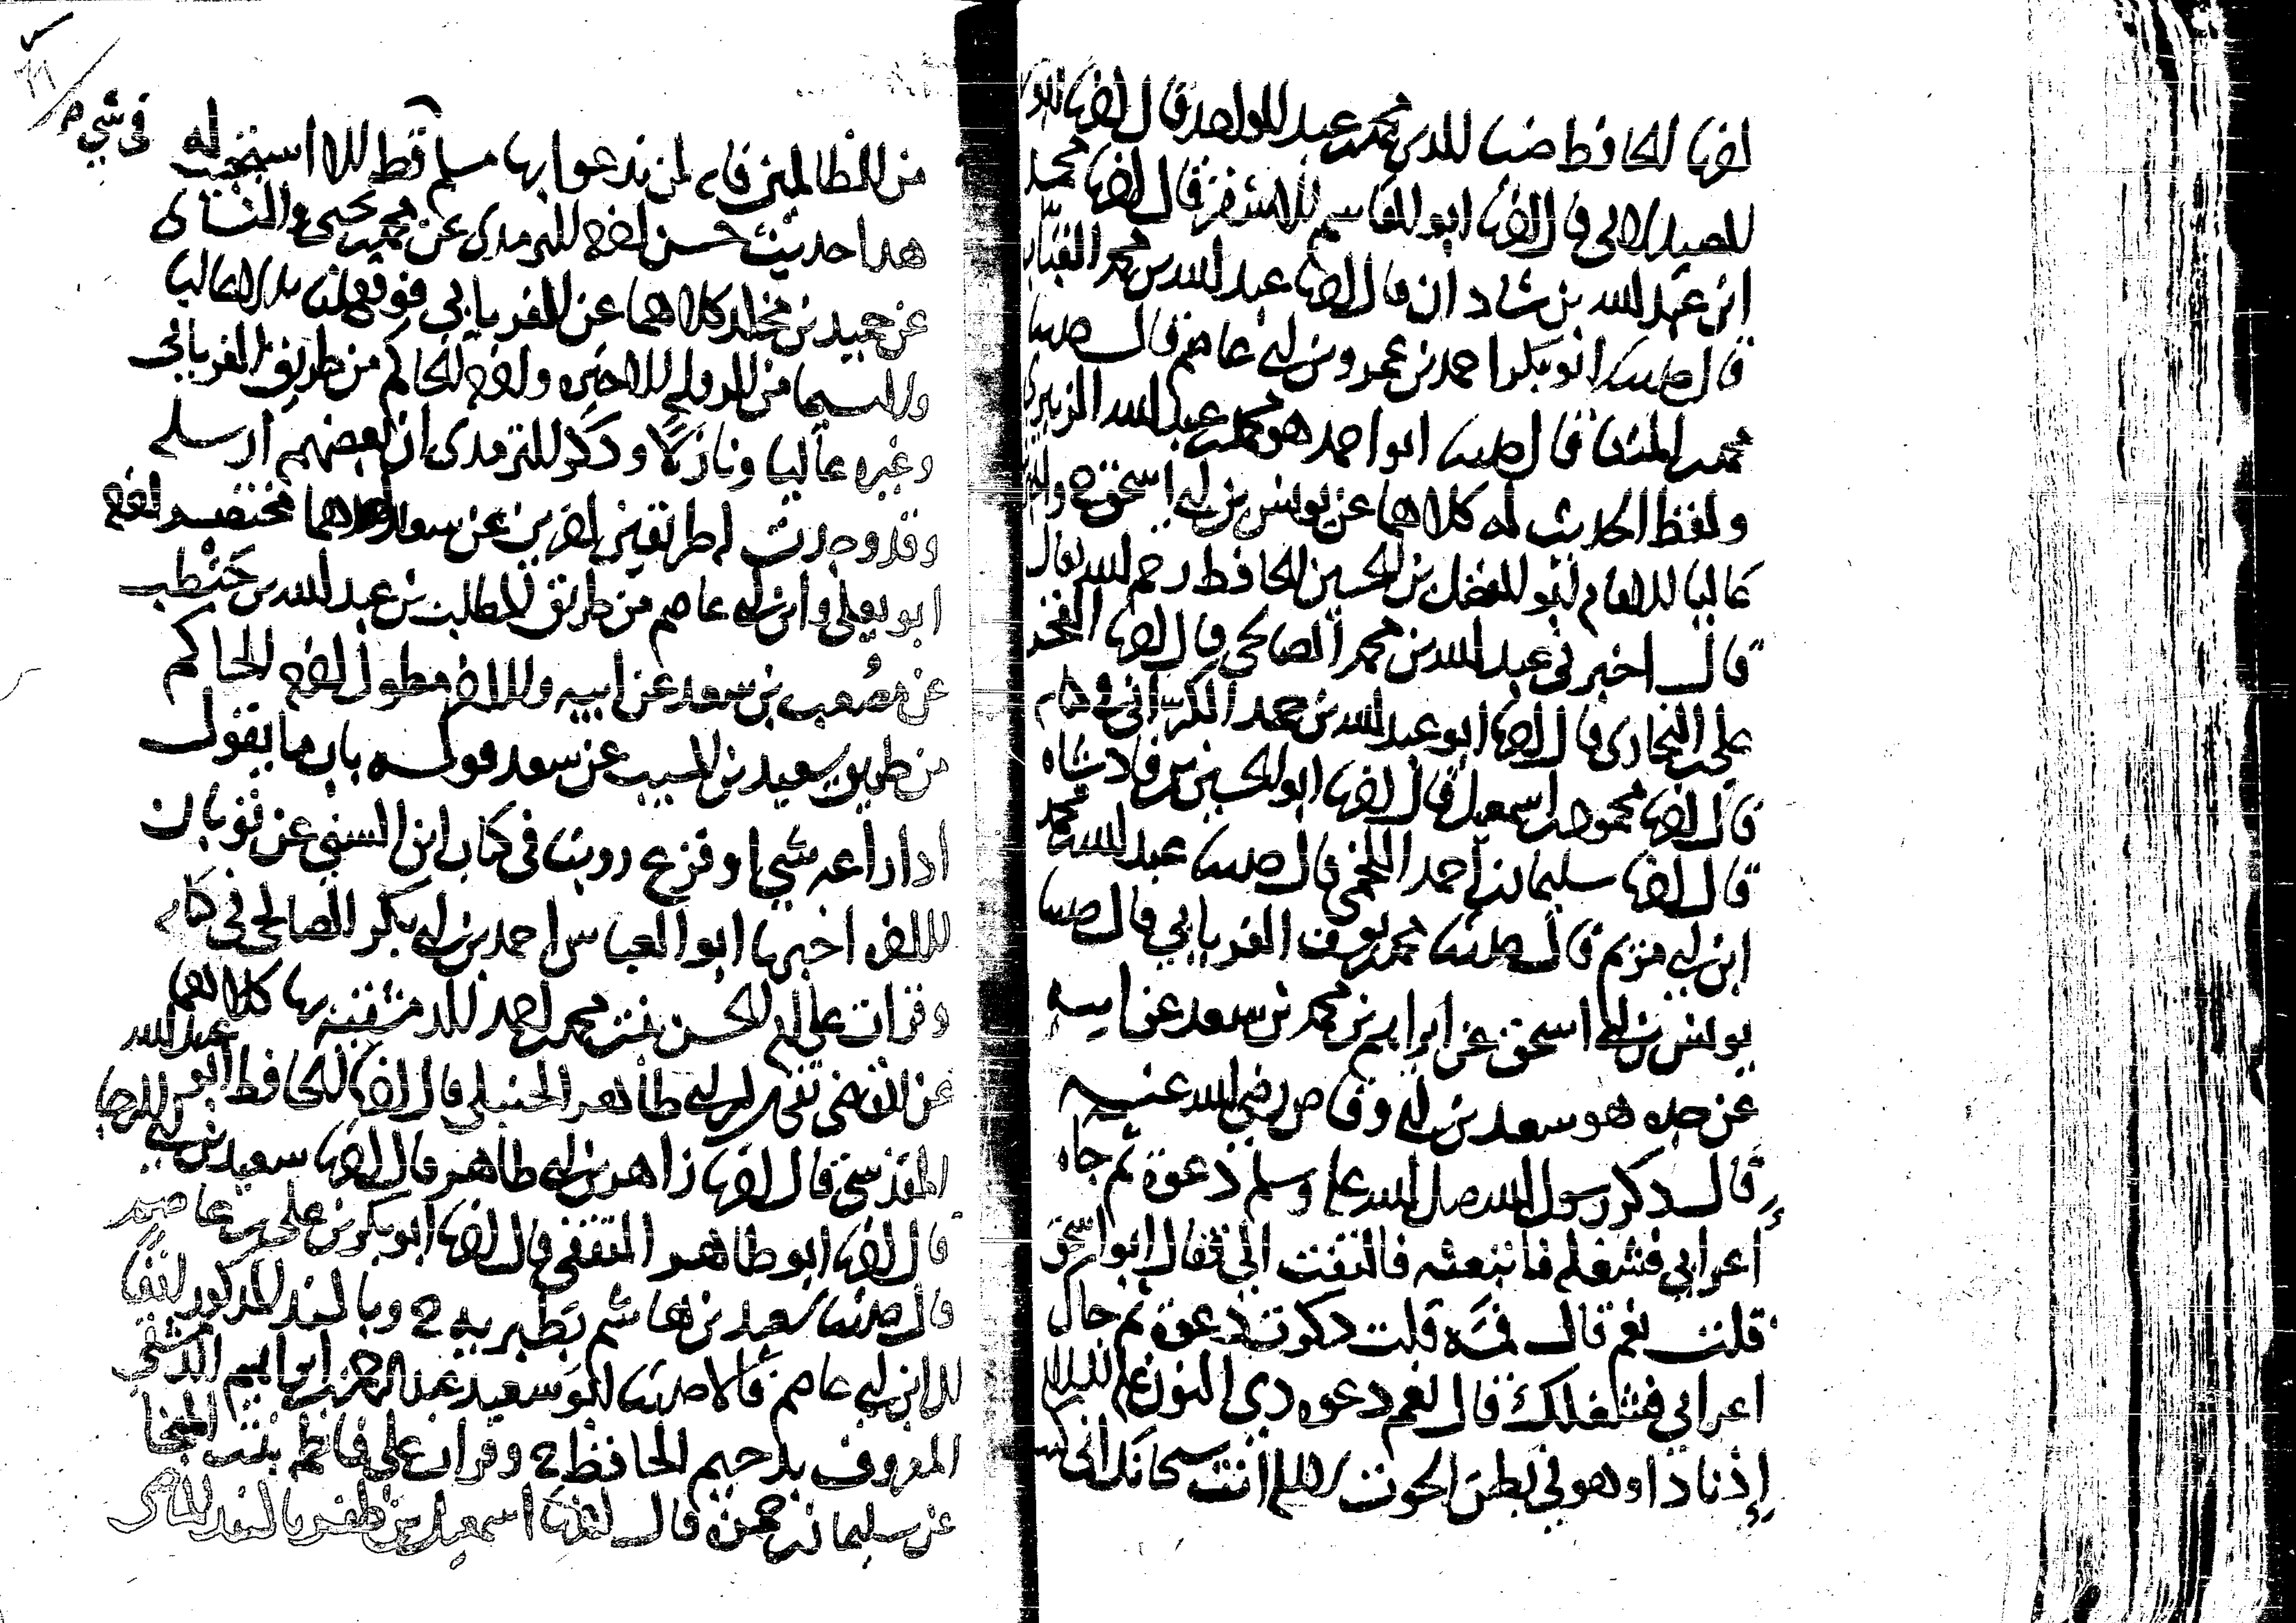 اخبرنا الحافظ ضيا الدين محمد بن عبد الواحد قال اخبرنا ابو
الصيدلاني قال اخبرنا ابو القاسم الاشقر قال اخبرنا محمد
ابن عبد الله بن شاذان قال اخبرنا عبد الله بن محمد القباب
قال حدثنا ابو بكر احمد بن عمرو بن ابي عاصم قال حدثنا
محمد بن المثنى قال حدثنا ابو احمد هو محمد بن عبد الله الزبيري
ولفظ الحديث له كلاهما عن يونس بن ابي اسحق ح
عاليا الامام ابو الفضل بن الحسين الحافظ رحمه الله تعالى
قال اخبرني عبد الله بن محمد الصالحي قال اخبرنا الفخر
علي البخاري قال اخبرنا ابو عبد الله بن حمد الكراني في
قال اخبرنا محمود بن اسمعيل قال اخبرنا ابو الحسين بن فاذشاه
قال اخبرنا سليمان بن احمد اللخمي قال حدثنا عبد الله بن محمد
ابن ابي مريم قال حدثنا محمد بن يوسف الفريابي قال حدثنا
يونس بن ابي اسحق عن ابراهيم بن محمد بن سعد عن ابيه
عن جده هو سعد بن ابي وقاص رضي الله عنه
قال ذكر رسول الله صلى الله عليه وسلم دعوة ثم جاه
اعرابي فشغله فاتبعته فالتفت الي فقال ابو اسحق
قلت نعم قال فمه قلت ذكرت دعوة ثم جاك
اعرابي فشغلك قال نعم دعوة ذي النون عليه السلام
إذ نادا وهو في بطن الحوت لا اله الا انت سبحانك اني كنت
من الظالمين فانه لن يدعوا بها مسلم قط الا استجيب له في شي
هذا حديث حسن اخرجه الترمذي عن محمد بن يحيى والنساى
عن حميد بن مخلد كلاهما عن الفريابي فوقع لنا بدلا عاليا
ولا سيما من الرواية الاخيره واخرجه الحاكم من طريق الفريابي
وغيره عاليا ونازلا وذكر الترمذى ان بعضهم ارسله
وقد وجدت له طريقين اخرين عن سعد احدهما مختصر اخرجه
ابو يعلى وابن ابي عاصم من طريق المطلب بن عبد الله بن حنطب
عن مصعب بن سعد عن ابيه والاخر مطول اخرجه الحاكم
من طريق سعيد بن المسيب عن سعد قوله باب ما يقول
اذا راعه شي او فزع روينا في كتاب ابن السني عن ثوبان
الى اخره اخبرنا ابو العباس احمد بن ابي بكر الصالحي في كتابه
وقرات على ام الحسن بنت محمد بن احمد الدمشقيه بها كلاهما
عن القاضي تقي الدين ابي طاهر الحنبلي قال اخبرنا الحافظ ابو عبد الله
المقدسي قال اخبرنا زاهر بن ابي طاهر قال اخبرنا سعيد بن ابي الرجا
قال اخبرنا ابو طاهر الثقفي قال اخبرنا ابو بكر بن علي بن عاصم
قال حدثنا سعيد بن هاشم بطبريه ح وبالسند المذكور انفا
الى ابن ابي عاصم قالا حدثنا ابو سعيد عبد الرحمن بن ابراهيم الدمشقي
المعروف بدحيم الحافظ ح وقرات على فاطمه بنت المنجا
عن سليمان بن حمزه قال اخبرنا اسمعيل بن ظفر بالسند الماضي